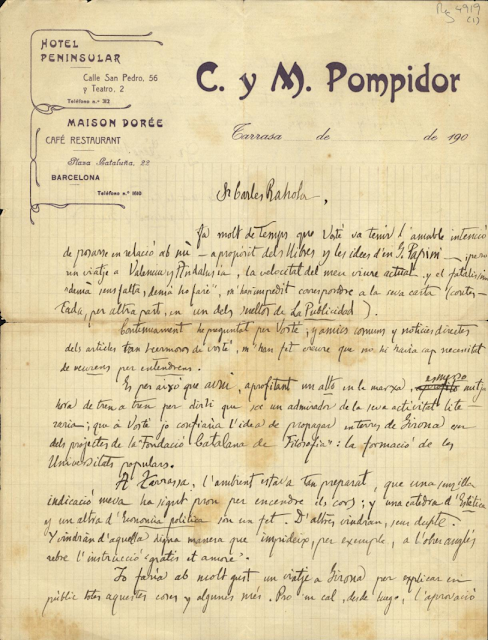 Rg 4919
(1)
HOTEL
PENINSULAR
Calle San Pedro, 56
y Teatro, 2
Teléfono n.º 312
MAISON DORÉE
CAFÉ RESTAURANT
Plaza Cataluña, 22
BARCELONA
Teléfono n.º
C. y M. Pompidor
Tarrasa de de 190
Sr Carles Rahola,
Ja molt de temps que Vosté va tenir l'amable intenció
de posarse en relació ab mi – a propòsit dels llibres y les idees d'en G. Papini –, pero
un viatje a Valencia y Andalusia, la velocitat del meu viure actual y el fatalissim
"demà sens falta, demà ho faré", m'han impedit correspondre a la seva carta (contes-
tada, per altra part, en un dels sueltos de La Publicidad).
Continuament he preguntat per Vosté, y amics comuns y noticies directes
dels articles tan hermosos de vosté, m'han fet creure que no hi havia cap necessitat
de veurens per entendrens.
Es per aixó que avui, aprofitant un alto en la marxa, empro mitja
hora de tren a tren per dirli que soc un admirador de la seva activitat lite-
raria; que a Vosté jo confiaria l'idea de propagar en terres de Girona un
dels projectes de la "Fondació Catalana de Filosofía": la formació de les
Universitats populars.
A Tarrassa, l'ambient estava tan preparat, que una senzilla
indicació meva ha sigut prou per encendre els cors; y una catedra d'Estética
y un altra d'Economia politica son un fet. D'altres vindran, sens dupte.
Y vindran d'aquella digna manera que impideix, per exemple, a l'obrer anglés
rebre l'instrucció "gratis et amore".
Jo faria ab molt gust un viatje a Girona per explicar en
públic totes aquestes coses y algunes més. Pro 'm cal, desde luego, l'aprovació